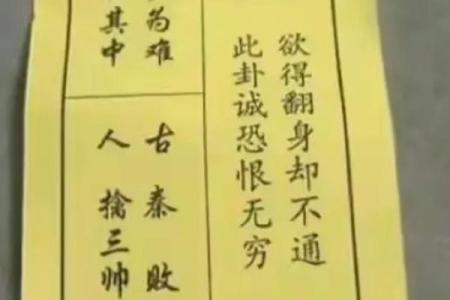 欲得翻身却不通
此卦诚恐恨无穷
为难
其中
古秦败
人擒三帅